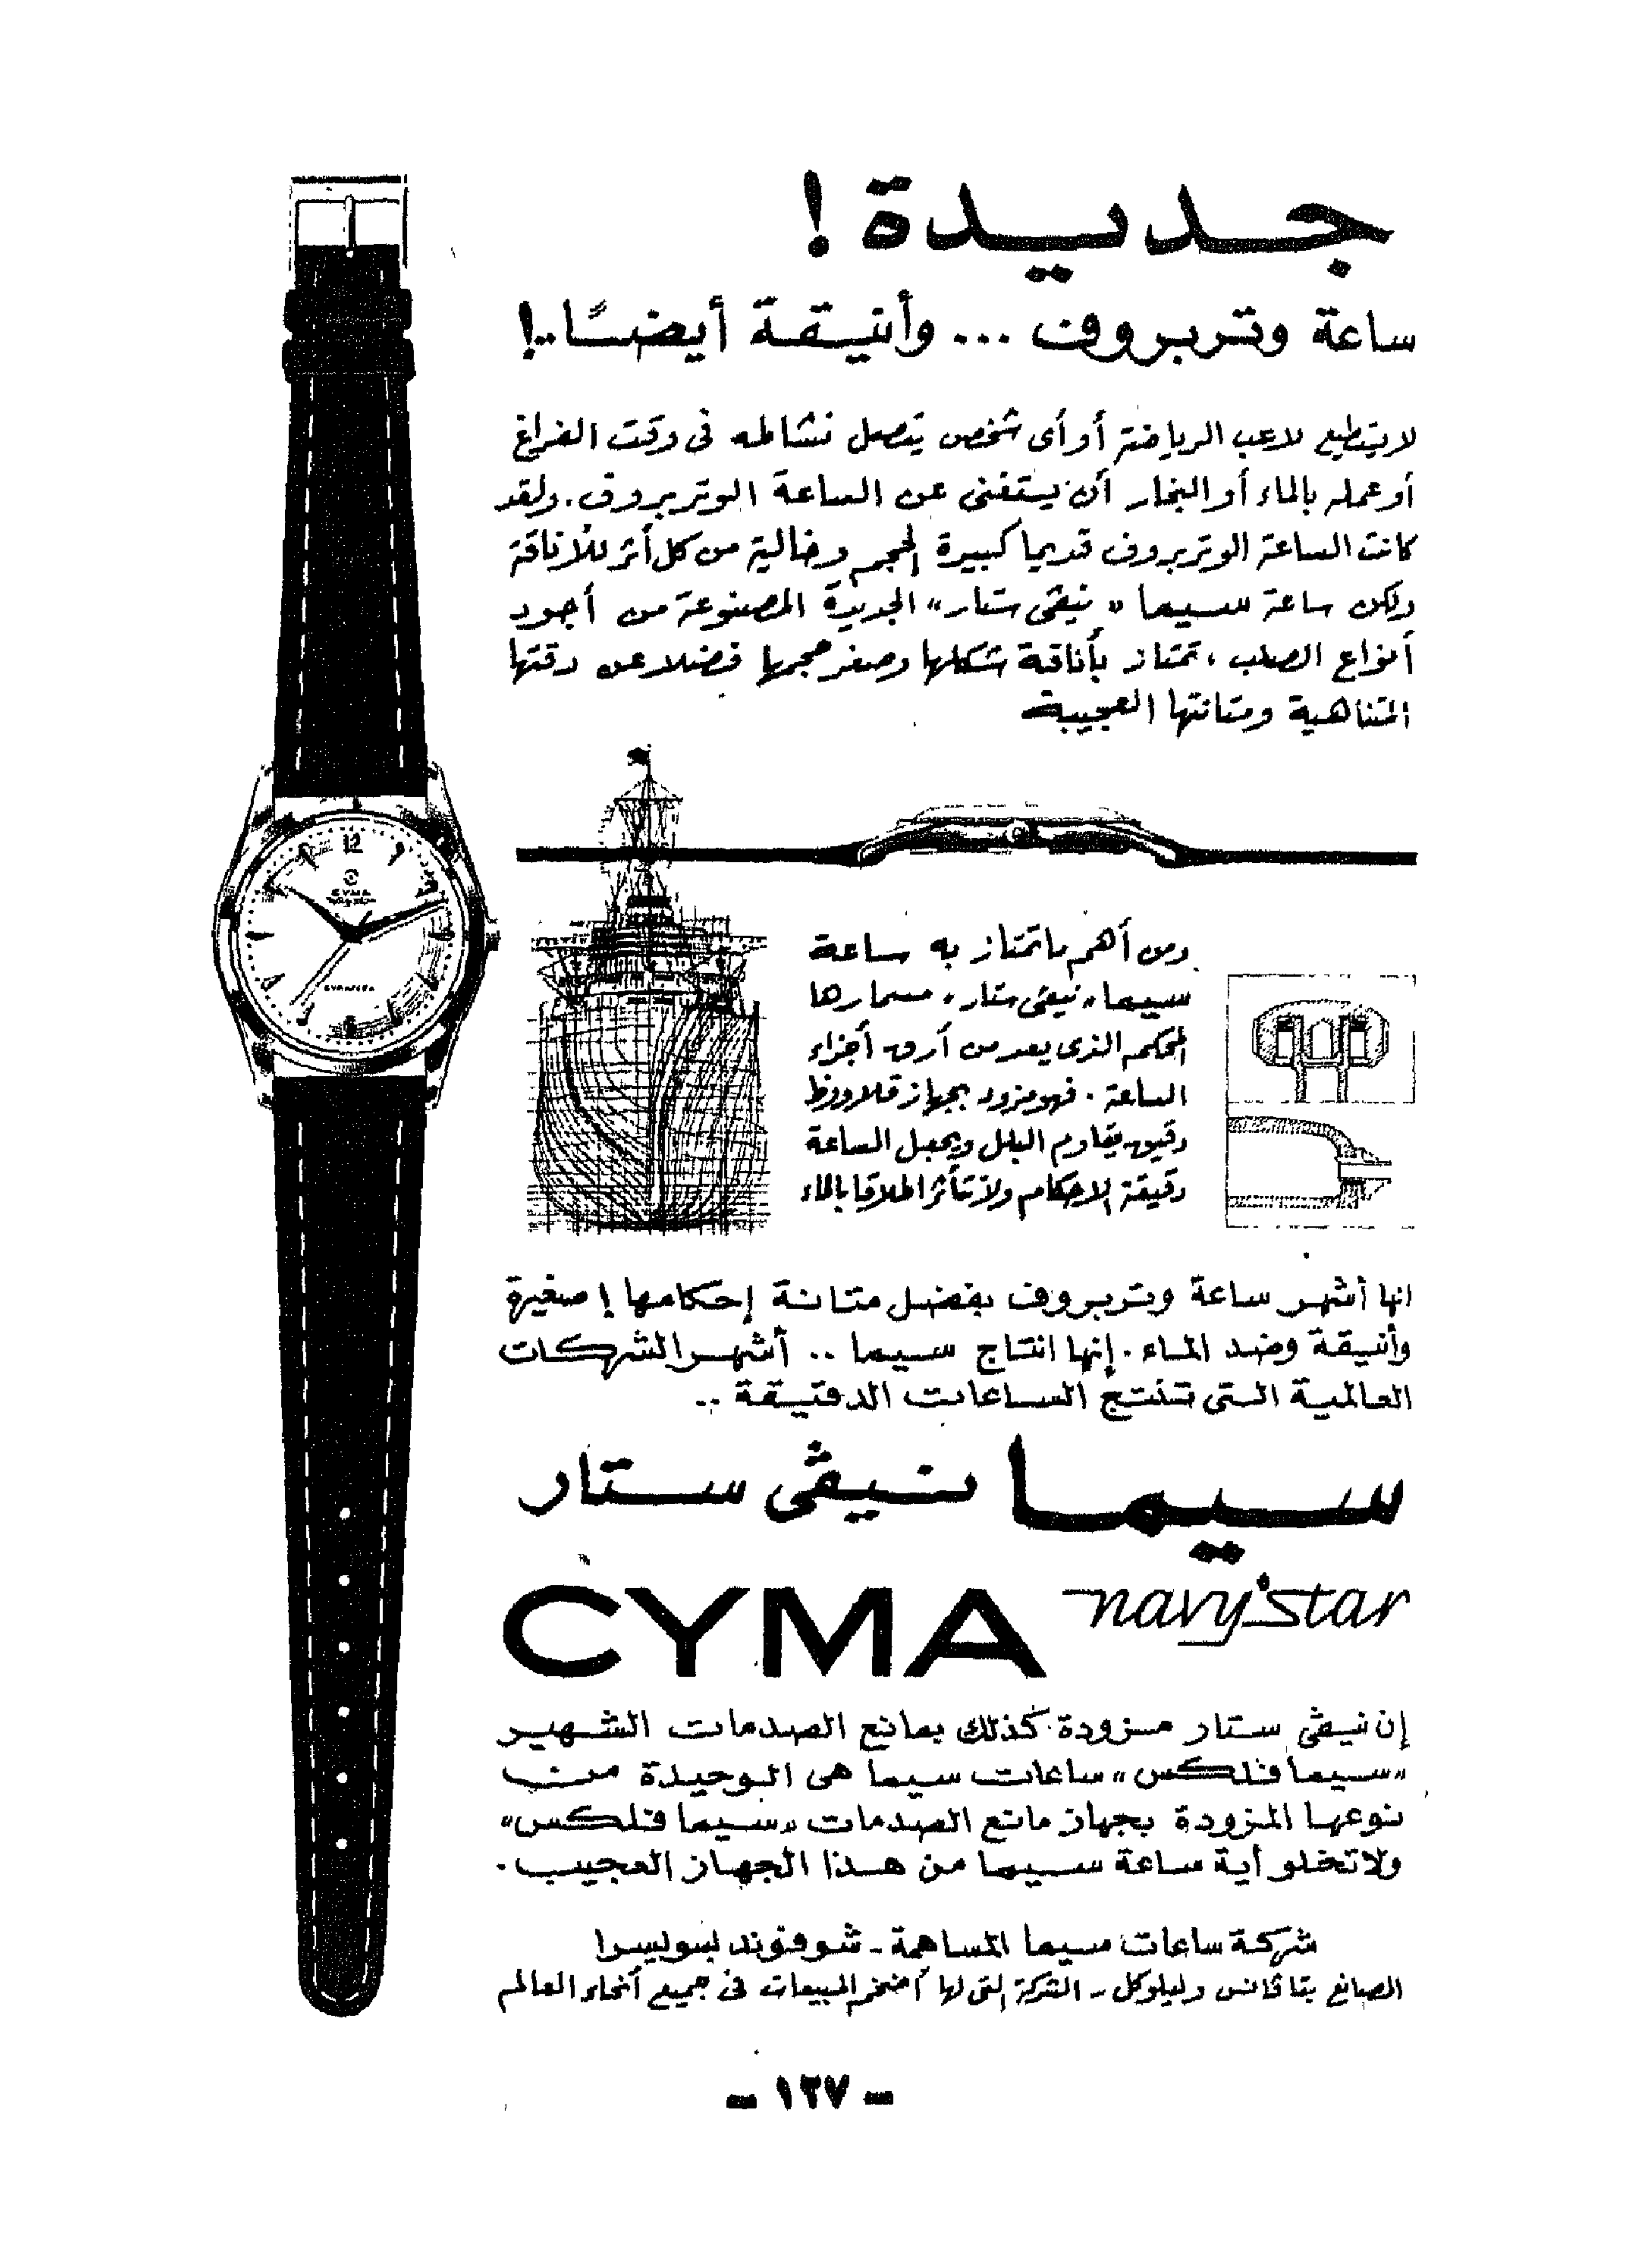 جديدة !
ساعة وتربروف ... وأنيقة أيضًا..!
لايستطيع لاعب الرياضة أو أى شخص يتصل نشاطه فى وقت الفراغ
أو عمله بالماء أو البخار أن يستغنى عن الساعة الوتربروف . ولقد
كانت الساعة الوتربروف قديما كبيرة الحجم وخالية من كل أثر للأناقة
ولكن ساعة سيما « نيڤى ستار» الجديدة المصنوعة من أجود
أنواع الصلب ، تمتاز بأناقة شكلها وصغر حجمها فضلا عن دقتها
المتناهية ومتانتها العجيبة
12
CYMA
CYMAFLEX
ومن أهم ما تمتاز به ساعة
سيما « نيڤى ستار » مسمارها
المحكم الذى يعد من أدق أجزاء
الساعة . فهو مزود بجهاز قلاووظ
دقيق يقاوم البلل ويجعل الساعة
دقيقة الاحكام ولا تتأثر اطلاقا بالماء
انها أشهر ساعة وتربروف بفضل متانة إحكامها ! صغيرة
وأنيقة وضد الماء . إنها انتاج سيما .. أشهر الشركات
العالمية التى تنتج الساعات الدقيقة ..
سيما نيڤى ستار
CYMA navystar
إن نيڤى ستار مزودة كذلك بمانع الصدمات الشهير
«سيما فلكس» ساعات سيما هى الوحيدة من
نوعها المزودة بجهاز مانع الصدمات «سيما فلكس»
ولا تخلو أية ساعة سيما من هذا الجهاز العجيب .
شركة ساعات سيما المساهمة - شوفوند لسويسرا
الصانع بتاڤانس ولپلوكل - الشركة التى لها أضخم المبيعات فى جميع أنحاء العالم
- ١٢٧ -